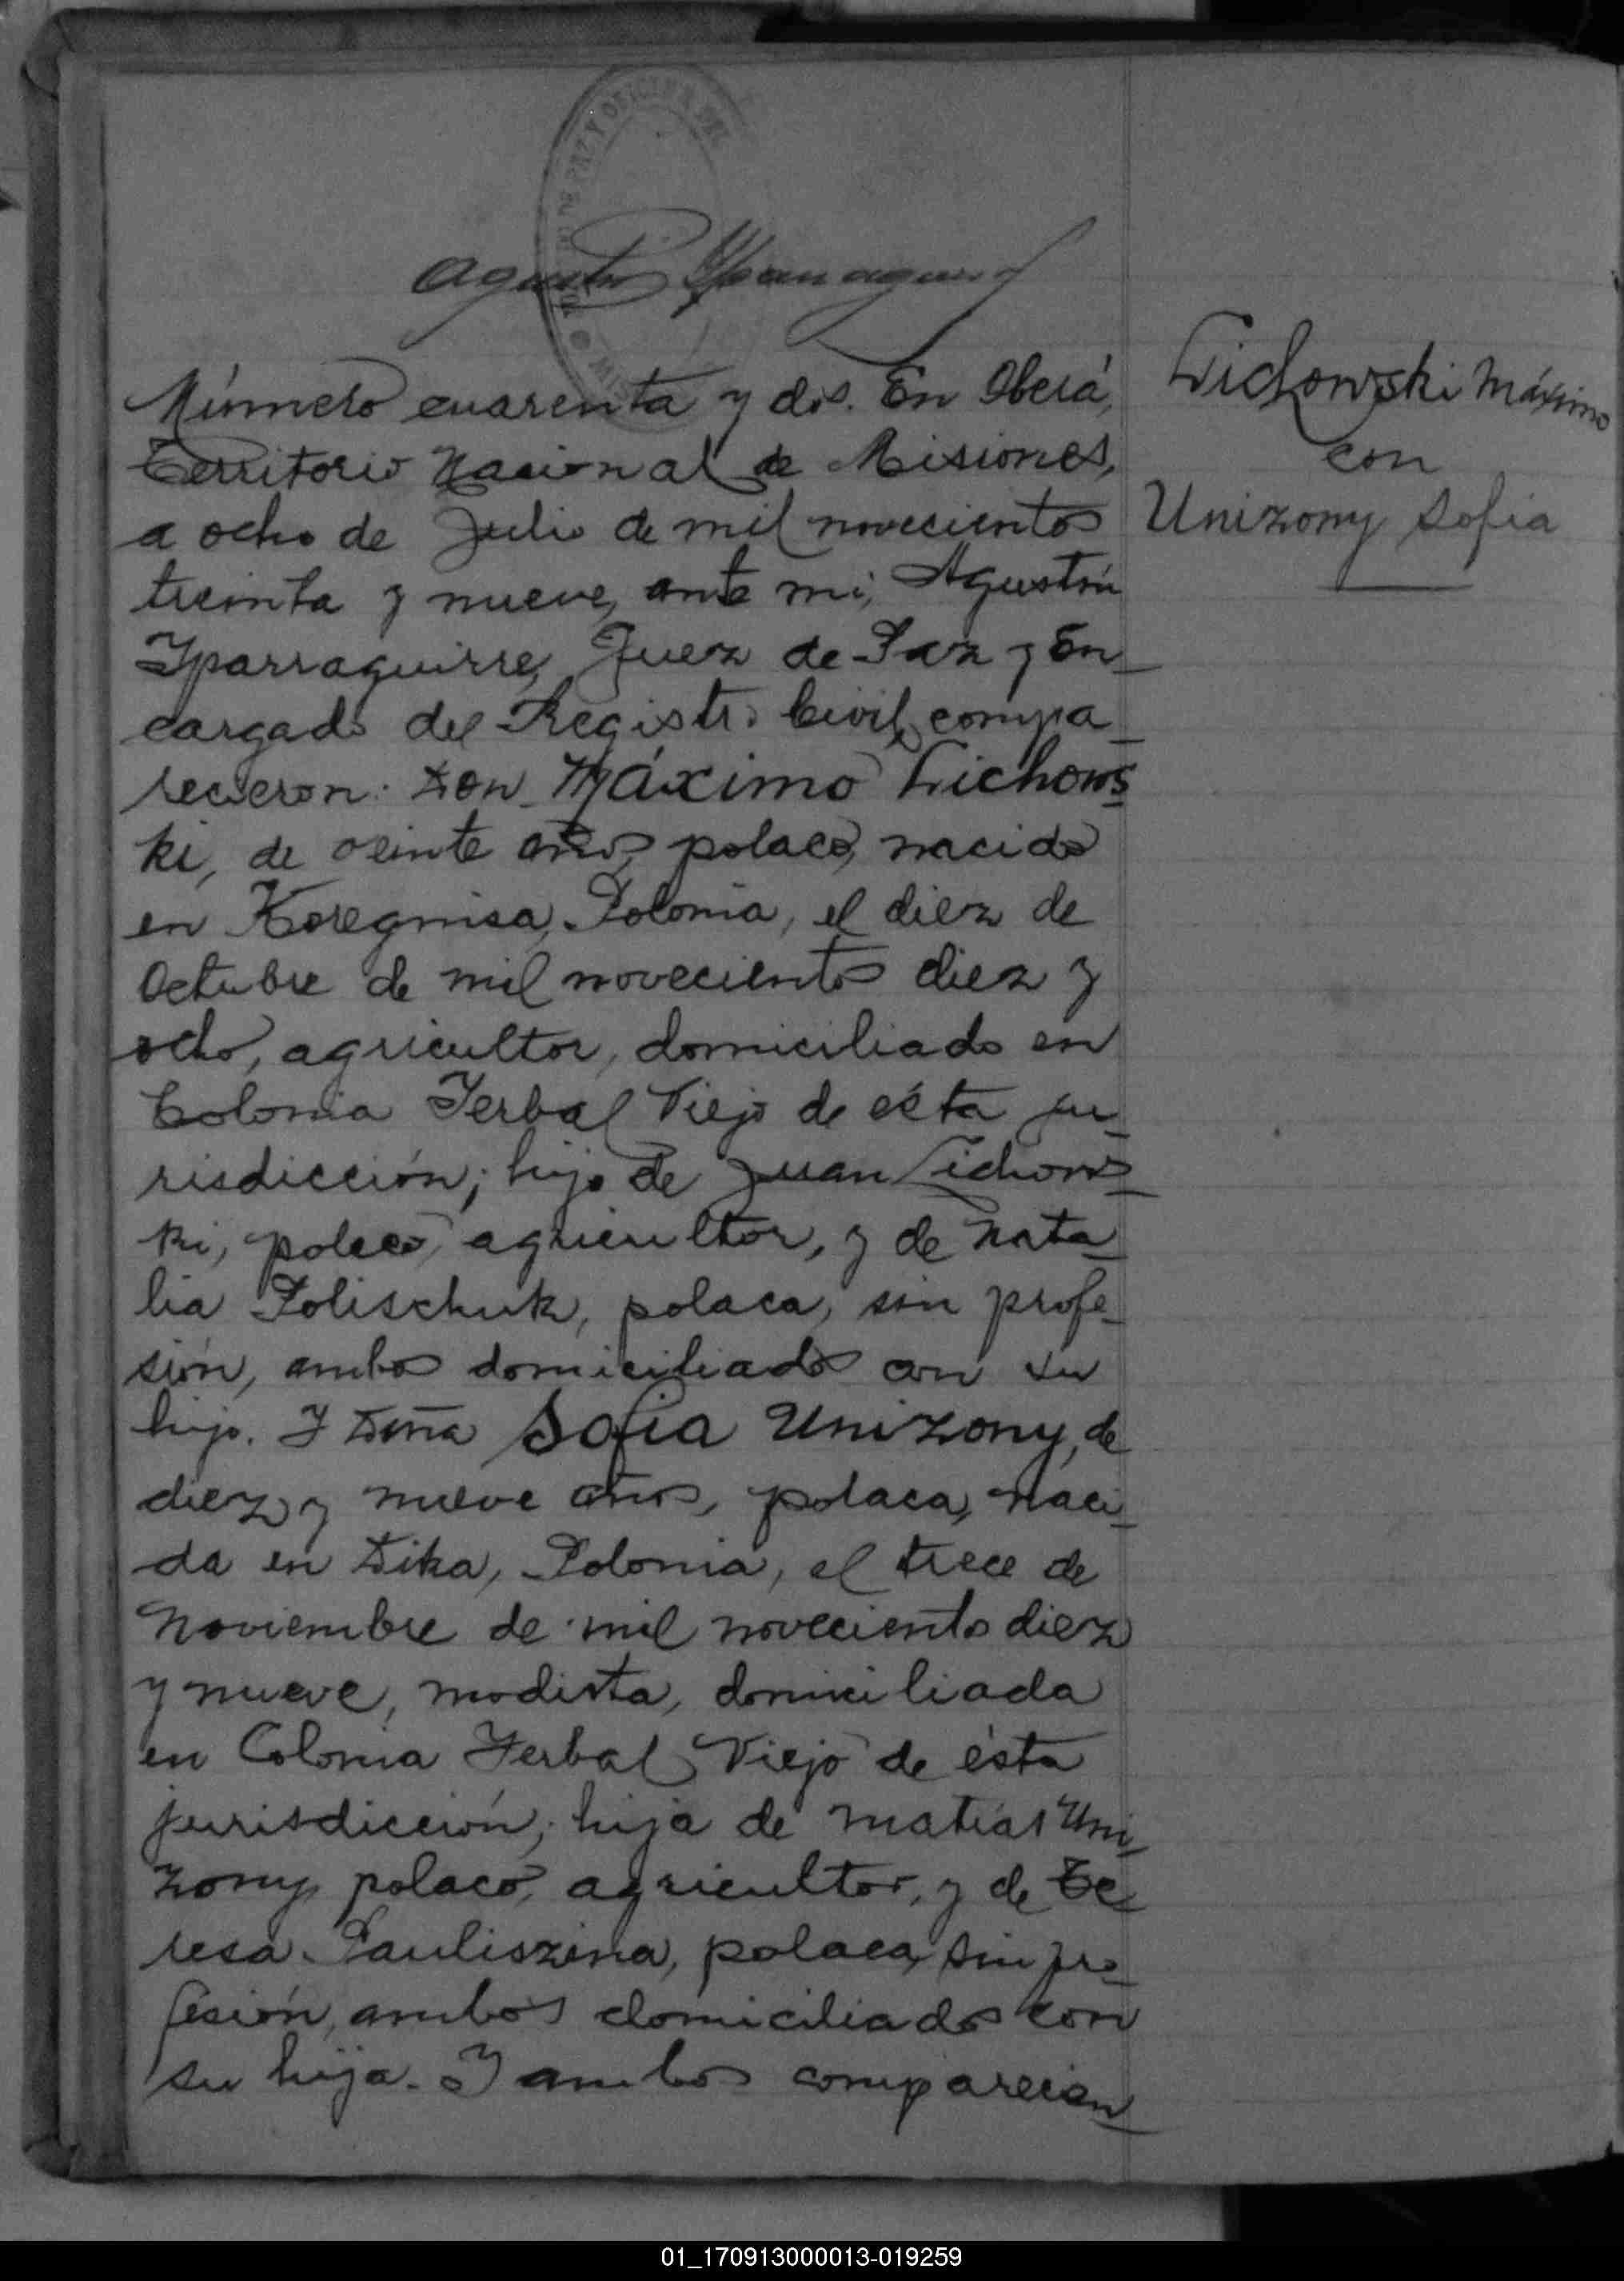 Número cuarenta y dos. En Oberá,
Territorio Nacional de Misiones,
a ocho de Julio de mil novecientos
treinta y nueve, ante mi, Agustín
Yparraguirre, Juez de Paz y En_
cargado del Registro Civil, compa_
recieron: Don Máximo Lichows_
ki, de veinte años, polaco, nacido
en Polonia, el diez de
Octubre de mil novecientos diez y
ocho, agricultor, domiciliado en
Colonia Yerbal Viejo de ésta ju_
risdicción; hijo de Juan Lichows_
ki, polaco, agricultor, y de Nata_
lia Polischuk, polaca, sin profe_
sión, ambos domiciliados con su
hijo. Y Doña Sofia Unizony, de
diez y nueve años, polaca, naci_
da en Dika, Polonia, el trece de
Noviembre de mil novecientos diez
y nueve, modista, domiciliada
en Colonia Yerbal Viejo de ésta
jurisdicción; hija de Matías Uni_
zony, polaco, agricultor, y de Te_
resa Pauliszena, polaca, sin pro_
fesión, ambos domiciliados con
su hija. Y ambos comparecien_
Lichowski Máximo
con
Unizony Sofia
01_170913000013-019259